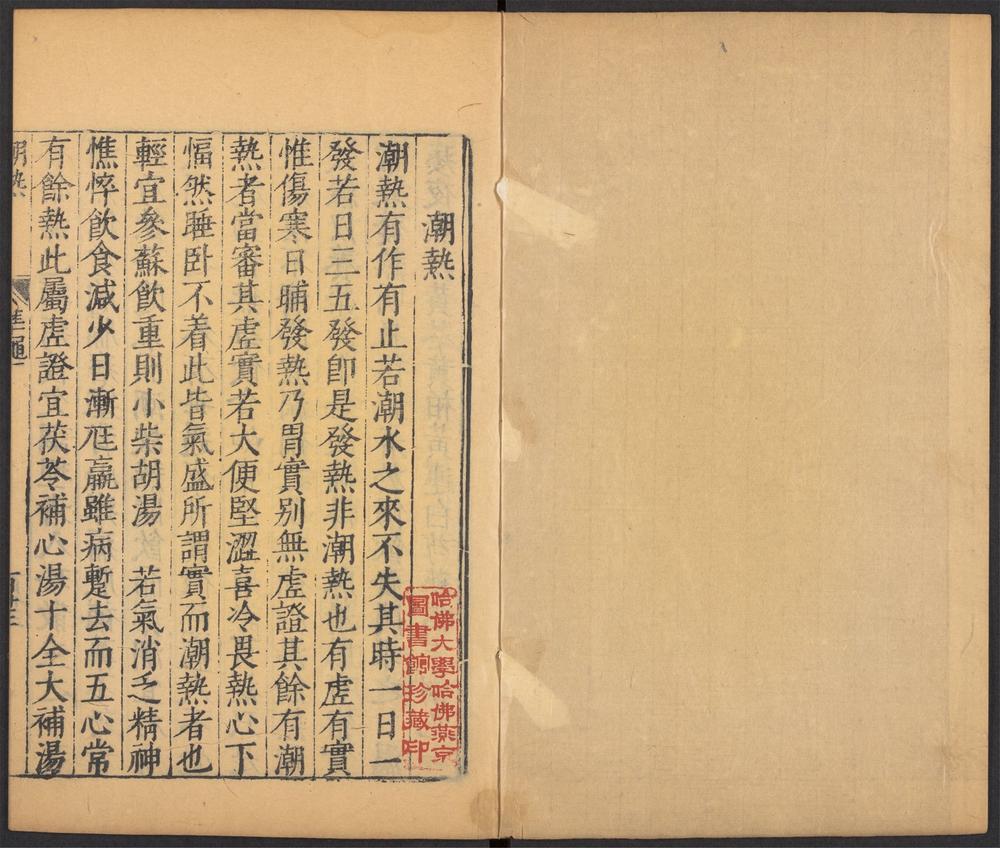 潮熱
潮熱有作有止若潮水之來不失其時一日一
發若日三五發卽是發熱非潮熱也有虛有實
惟傷寒日晡發熱乃胃實别無虛證其餘有潮
熱者當審其虛實若大便堅澀喜冷畏熱心下
愊然睡卧不着此皆氣盛所謂實而潮熱者也
輕宜參蘇飲重則小柴胡湯 若氣消乏精神
憔悴飲食減少日漸尫羸雖病蹔去而五心常
有餘熱此屬虛證宜茯苓補心湯十全大補湯
潮熱
哈佛大學哈佛燕京
圖書館珍藏印